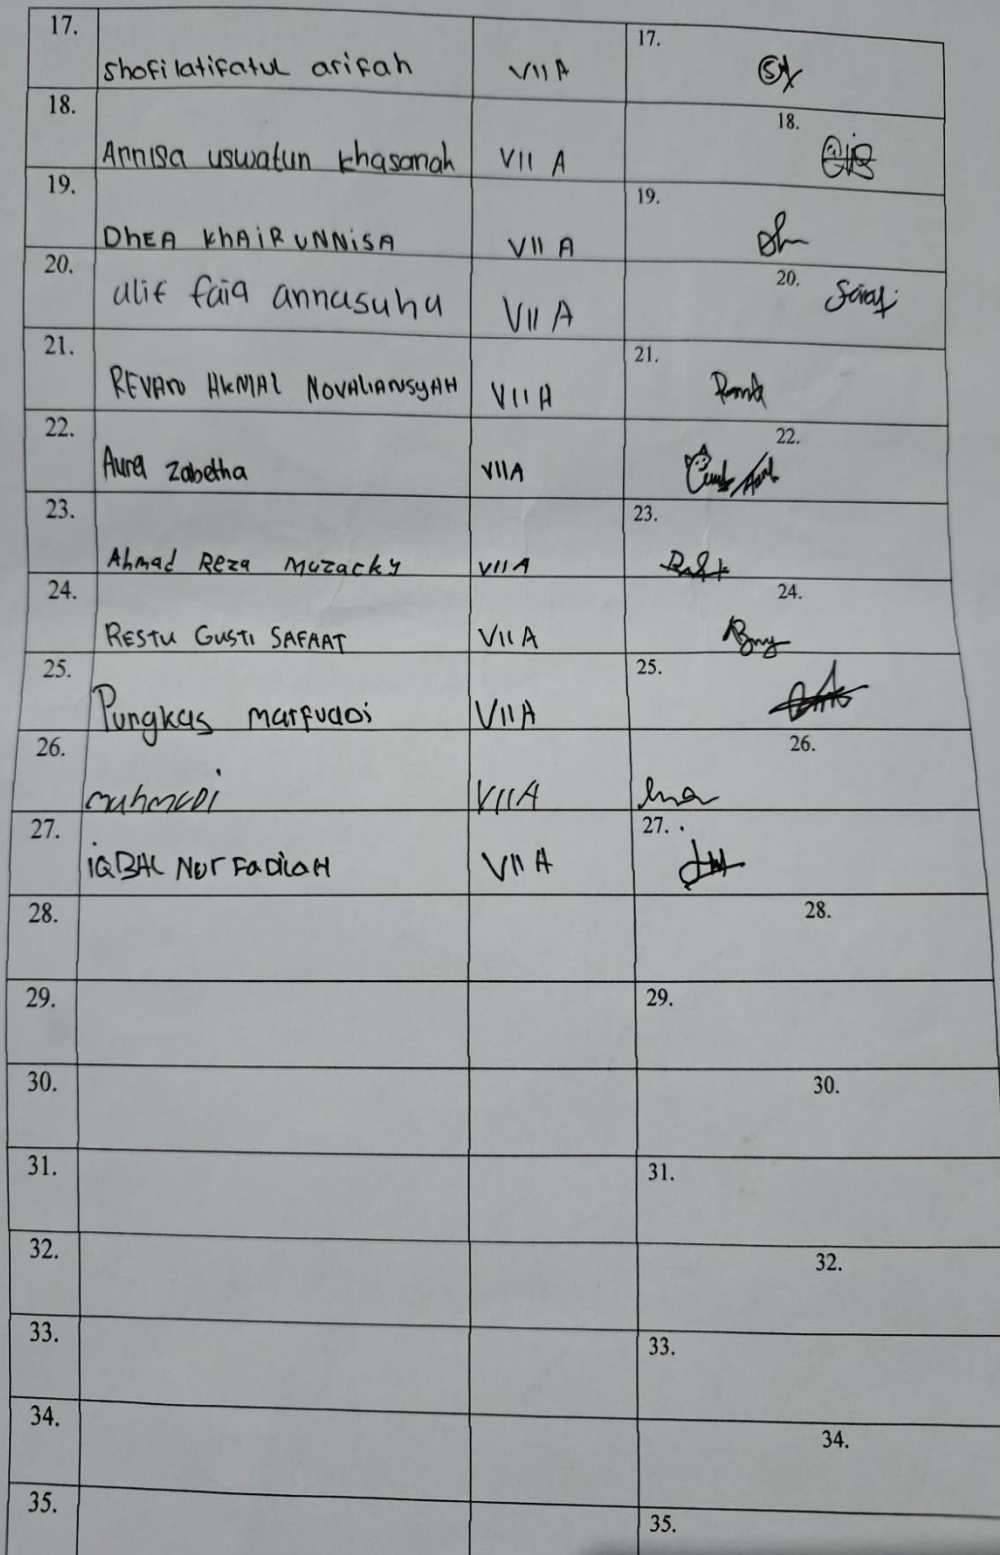 17. Shofi latifatul arifah VII A 17.
18. Annisa uswatun khasanah VII A 18.
19. DhEA KhAiRUNNiSA VII A 19.
20. alif faiq annasuha VII A 20.
21. REVAN AKMAL NOVALIANSYAH VII A 21.
22. Aura Zabetha VII A 22.
23. Ahmad Reza Muzacky VII A 23.
24. RESTU GUSTI SAFAAT VII A 24.
25. Pungkas marfuadi VII A 25.
26. VII A 26.
27. iQBAL NUr FaDiLaH VII A 27.
28. 28.
29. 29.
30. 30.
31. 31.
32. 32.
33. 33.
34. 34.
35. 35.